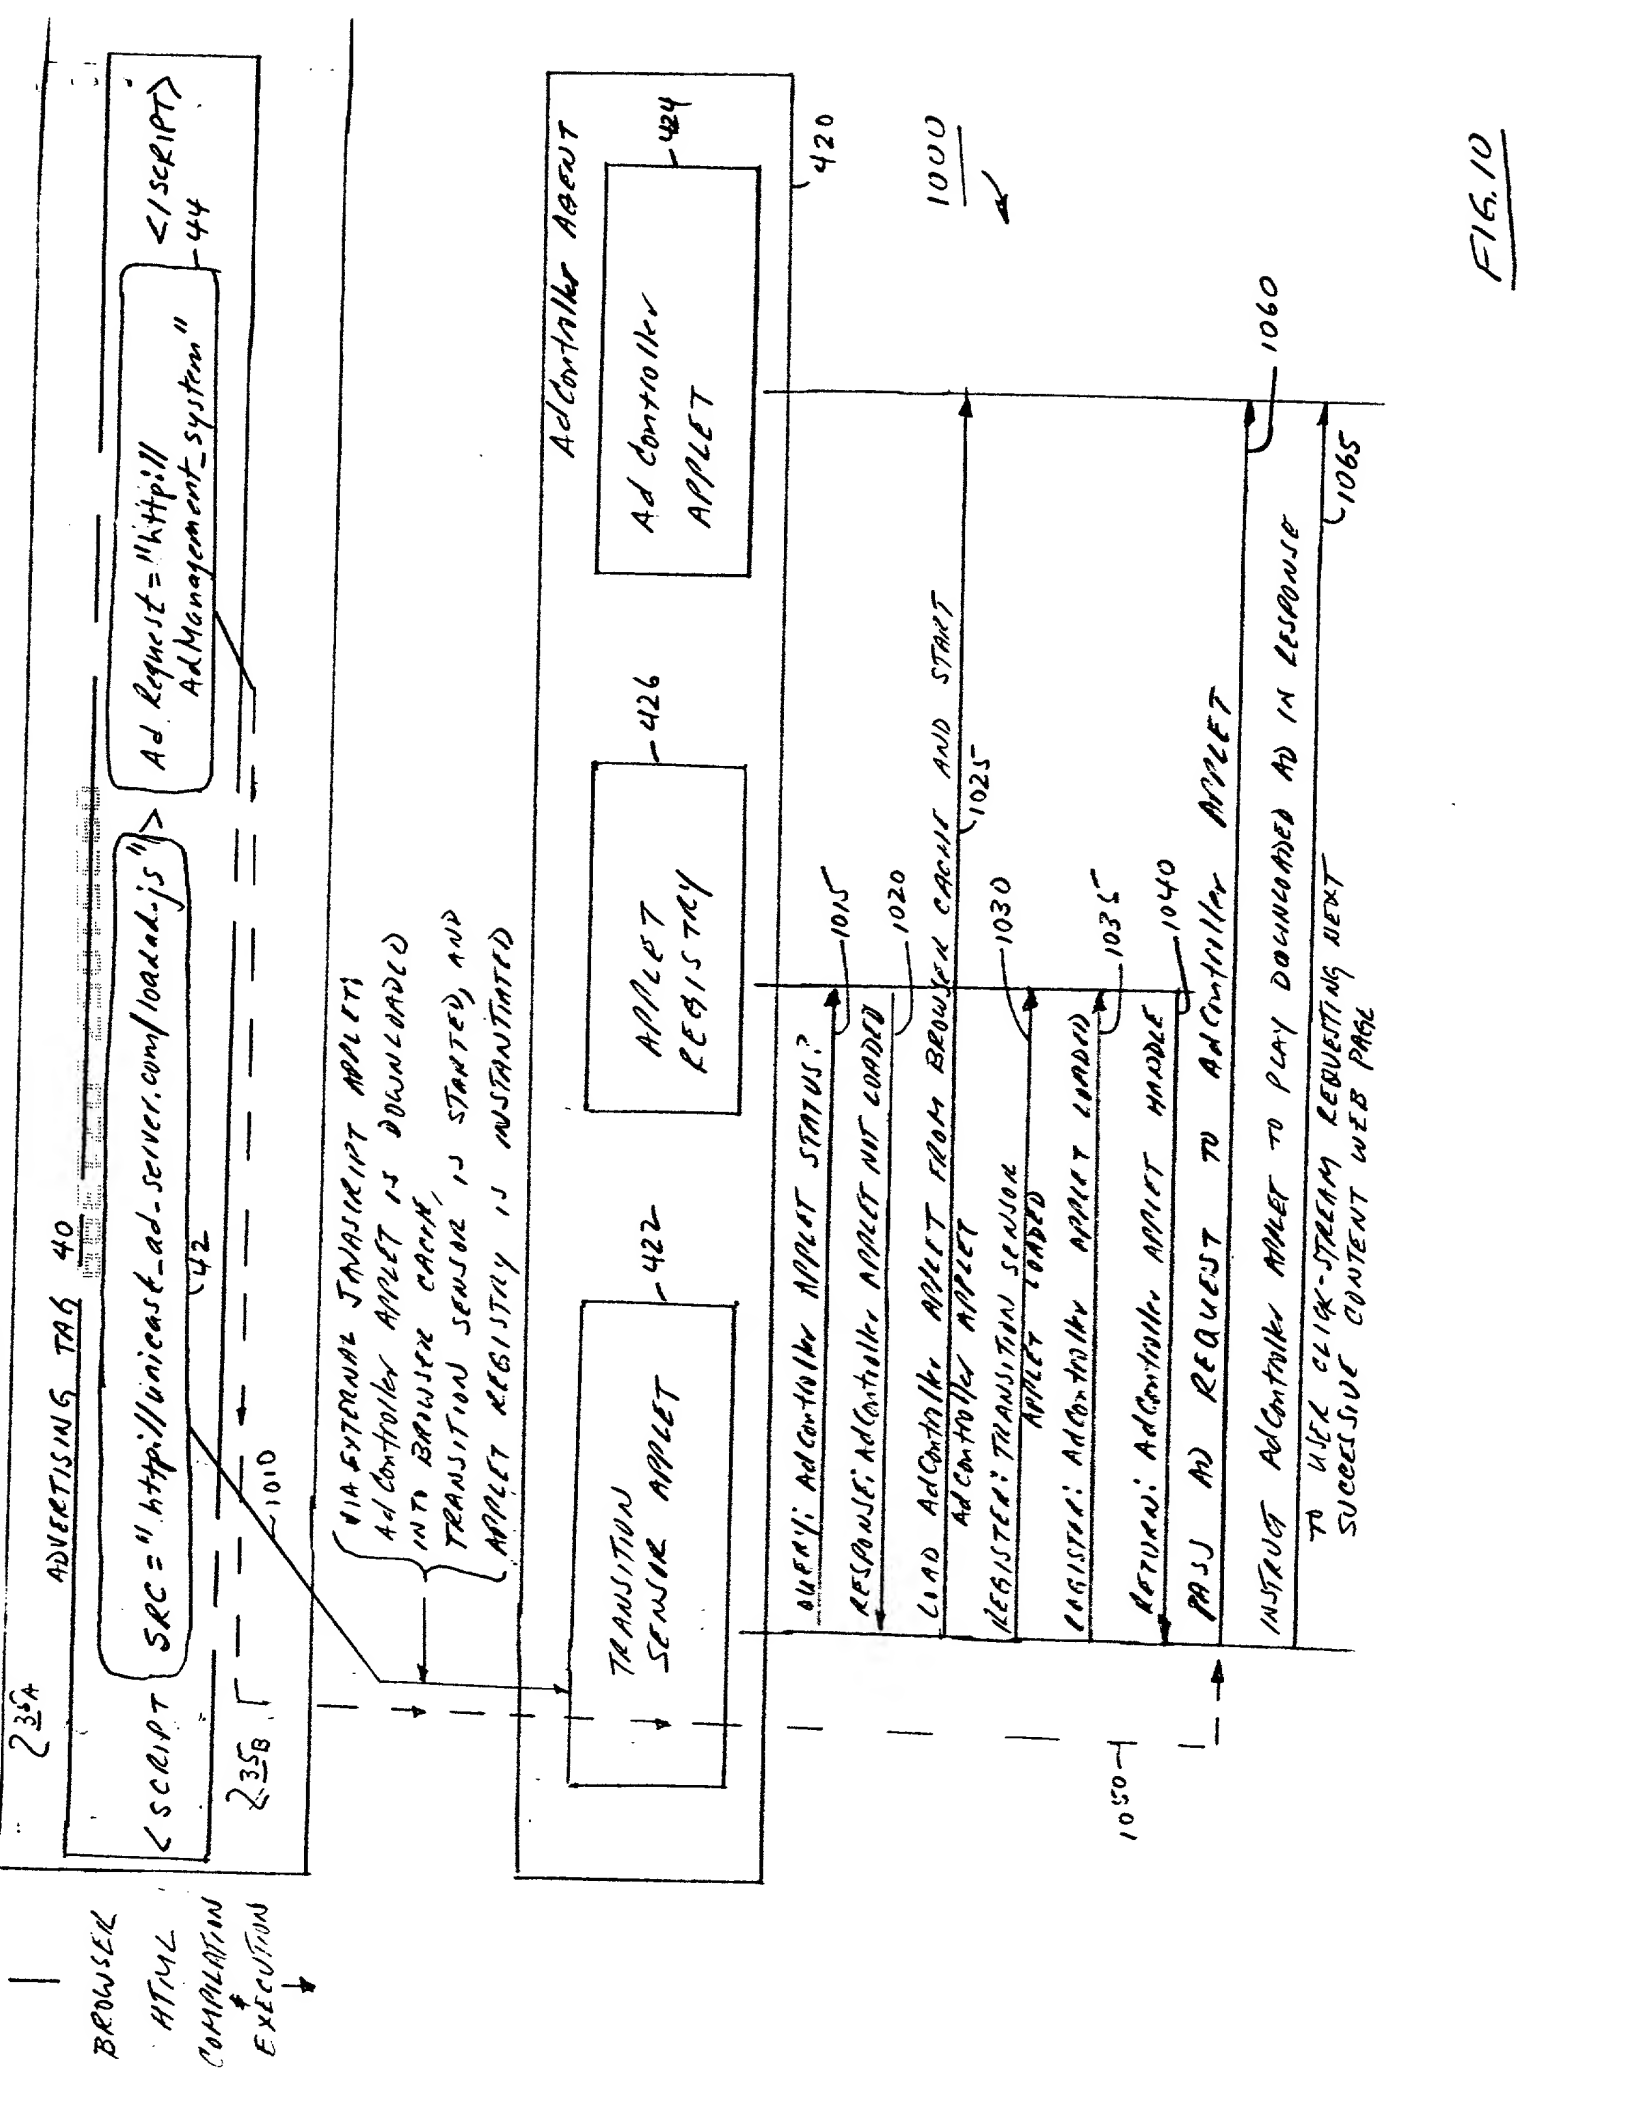 235A
ADVERTISING TAG 40
<SCRIPT SRC="http://unicast_ad-server.com/loadad.js"> Ad Request="http:// </SCRIPT>
AdManagement_system"
42
44
235B
1010
BROWSER
HTML
COMPILATION
&
EXECUTION
VIA EXTERNAL JAVASCRIPT APPLET:
AdController APPLET IS DOWNLOADED
INTO BROWSER CACHE,
TRANSITION SENSOR IS STARTED, AND
APPLET REGISTRY IS INSTANTIATED
AdController AGENT
TRANSITION
SENSOR APPLET
422
APPLET
REGISTRY
426
Ad Controller
APPLET
424
420
1000
QUERY: AdController APPLET STATUS?
1015
RESPONSE: AdController APPLET NOT LOADED
1020
LOAD AdController APPLET FROM BROWSER CACHE AND START
AdController APPLET
1025
REGISTER: TRANSITION SENSOR
APPLET LOADED
1030
REGISTER: AdController APPLET LOADED
1035
RETURN: AdController APPLET HANDLE
1040
PASS AD REQUEST TO AdController APPLET
1050
1060
INSTRUCT AdController APPLET TO PLAY DOWNLOADED AD IN RESPONSE
TO USER CLICK-STREAM REQUESTING NEXT
SUCCESSIVE CONTENT WEB PAGE
1065
FIG. 10